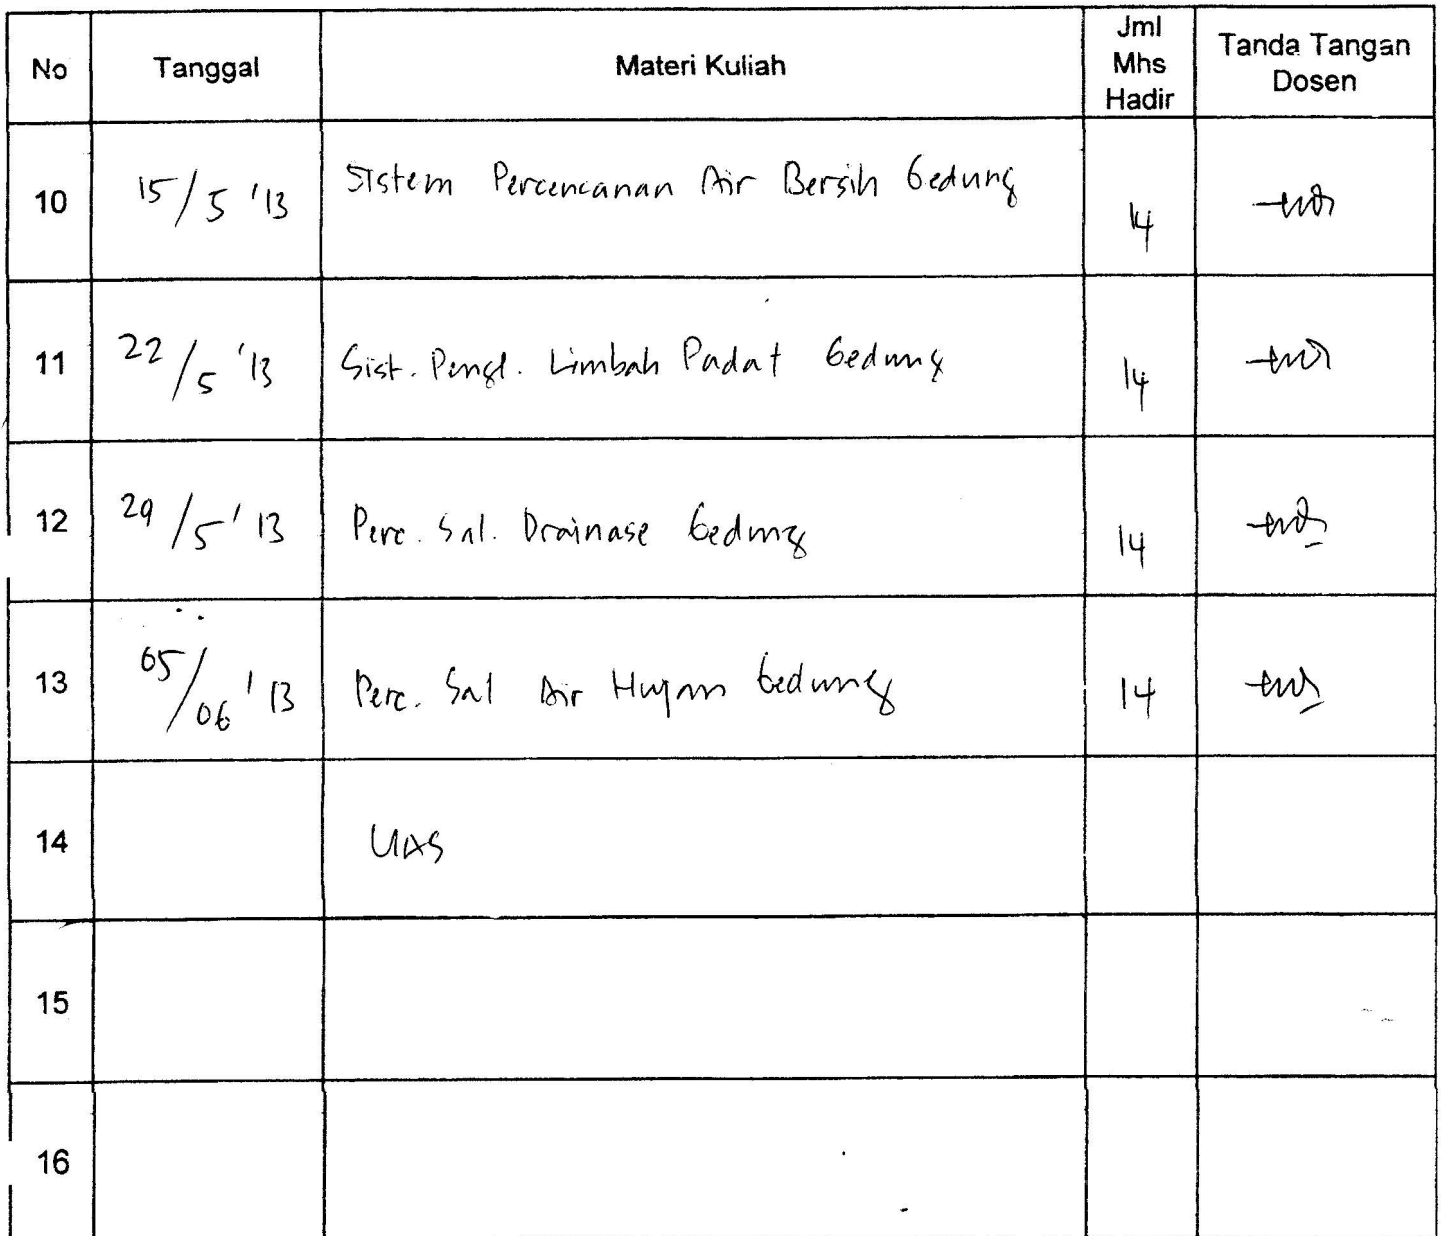 No Tanggal Materi Kuliah Jml Mhs Hadir Tanda Tangan Dosen
10 15/5 '13 Sistem Percencanan Air Bersih Gedung 14
11 22/5 '13 Sist. Pengl. Limbah Padat Gedung 14
12 29/5 '13 Perc. Sal. Drainase Gedung 14
13 05/06 '13 Perc. Sal Air Hujan Gedung 14
14 UAS
15
16